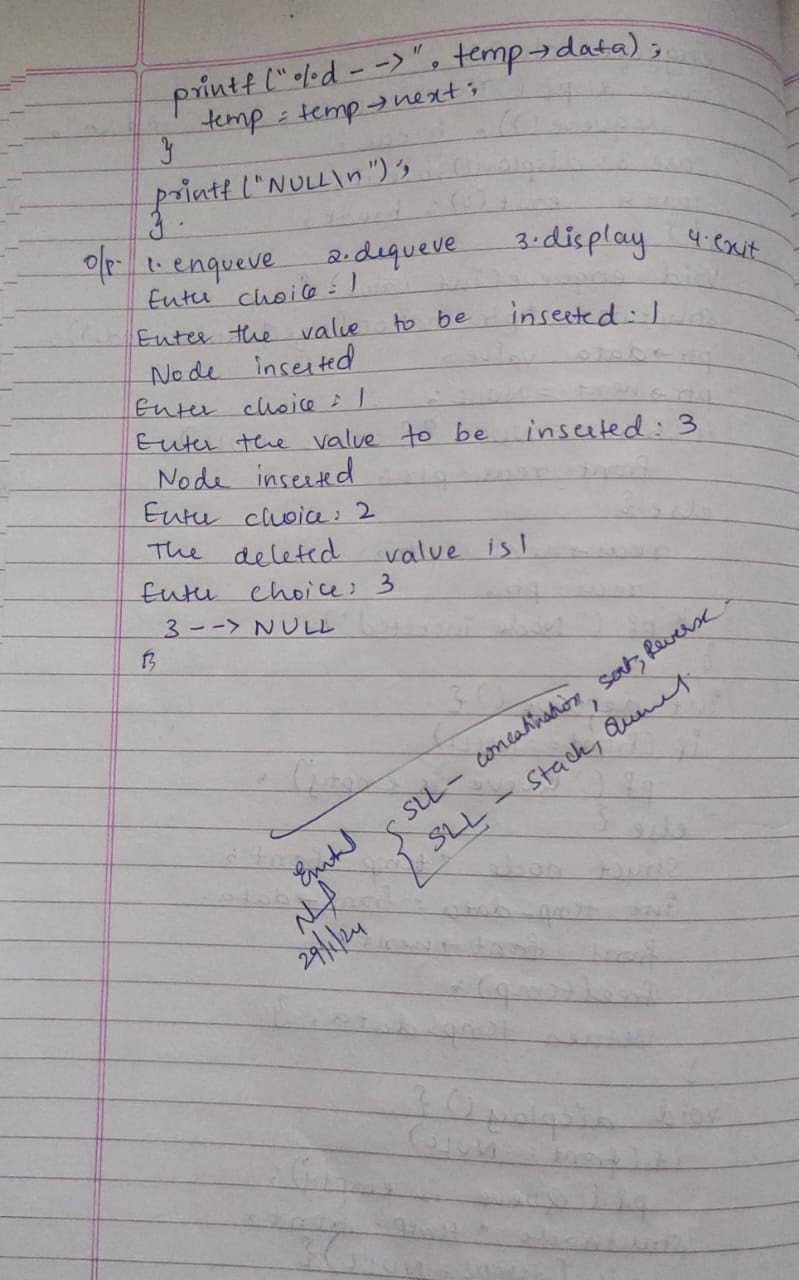 printf("%d-->", temp→data);
temp = temp→next;
}
printf("NULL\n");
}.
o/p- 1. enqueue 2. dequeue 3. display 4. exit
Enter choice: 1
Enter the value to be inserted: 1
Node inserted
Enter choice: 1
Enter the value to be inserted: 3
Node inserted
Enter choice: 2
The deleted value is 1
Enter choice: 3
3 --> NULL
SLL - concatination, sort, Reverse
SLL - Stack,
29/1/24